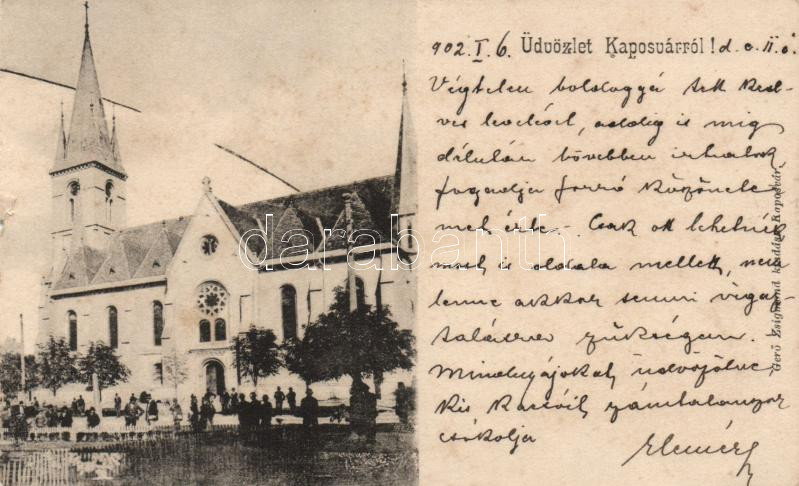 902. I. 6. Üdvözlet Kaposvárról! d. e. 11 ó
Végtelen boldoggá tett ked-
ves levelével, addig is míg
délután bővebben írhatok
fogadja forró köszönete-
met érte. Csak ott lehetnék
most is oldala mellett, nem
lenne akkor semmi vigasz-
talásra szükségem.
Mindnyájokat üdvözölve
kis kacsóit számtalanszor
csókolja
Elemér
Gerő Zsigmond kiadása, Kaposvár.
darabanth